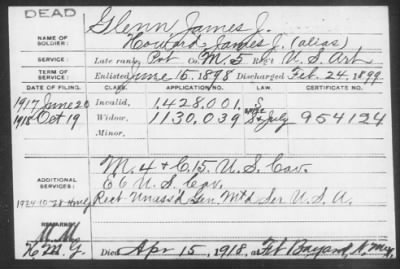 DEAD
NAME OF SOLDIER: Glenn, James J.
Howard, James J. (alias)
SERVICE: Late rank, Pvt Co. M. 5 Regt U. S. Art
TERM OF SERVICE: Enlisted June 15, 1898 Discharged Feb. 24, 1899
DATE OF FILING. CLASS. APPLICATION NO. LAW. CERTIFICATE NO.
1917 June 20 Invalid, 1,428,001. S
1918 Oct 19 Widow, 1130,039 July 954124
Minor,
ADDITIONAL SERVICES: M. 4 & C. 15. U. S. Cav.
E 6 U. S. Cav.
Rect Unass'd Gen. M't'd Ser U. S. A.
Died Apr 15, 1918, at Ft Bayard, N. Mex